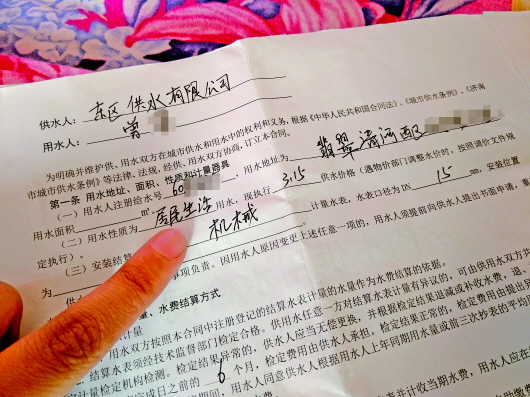 供水人：东区供水有限公司
用水人：曾
为明确并维护供、用水双方在城市供水和用水中的权利和义务，根据《中华人民共和国合同法》、《城市供水条例》、《济南
市城市供水条例》等法律、法规，经供、用水双方协商，订立本合同。
第一条 用水地址、面积、性质和计量器具
（一）用水人注册给水号 60 ，用水地址为 翡翠清河西区
用水面积 m²
（二）用水性质为 居民生活 用水，现执行 3.15 供水价格（遇物价部门调整水价时，按照调价文件规
定执行）。
（三）安装结算 计量水表，水表口径为 DN 15 mm，安装位置
为 机械
事项负责。因用水人原因变更上述任意一项的，用水人须提前向供水人提出书面申请，重
量、水费结算方式
计量
用水双方按照本合同中注册登记的结算水表计量的水量作为水费结算的依据。
结算水表须经技术监督部门检定合格。供用水任意一方对结算水表计量有异议的，可由供用水双方共
计量检定机构检测。检定结果异常的，供水人应当无偿更换，并根据检定结果退减或补收水费，退
完成日之前的 6 个月，检定费用由供水人承担。检定结果正常的，检定费用由提出异
期间，用水人同意供水人根据用水人上年同期用水量或前三次抄表的平均
表并计收当期水费，用水人应在